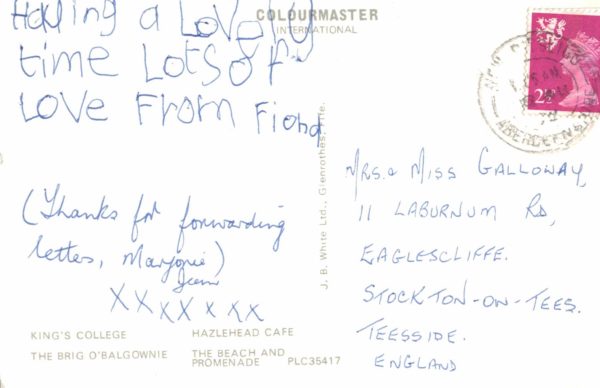 COLOURMASTER
INTERNATIONAL
Having a Lovely
time Lots of
Love From Fiona
(Thanks for forwarding
letters, Marjorie)
XXXXXXX
KING'S COLLEGE HAZLEHEAD CAFE
THE BRIG O'BALGOWNIE THE BEACH AND
PROMENADE PLC35417
J. B. White Ltd., Glenrothes, Fife.
2½
ABERDEENSHIRE
MRS. & MISS GALLOWAY,
11 LABURNUM RD,
EAGLESCLIFFE.
STOCKTON-ON-TEES.
TEESSIDE.
ENGLAND